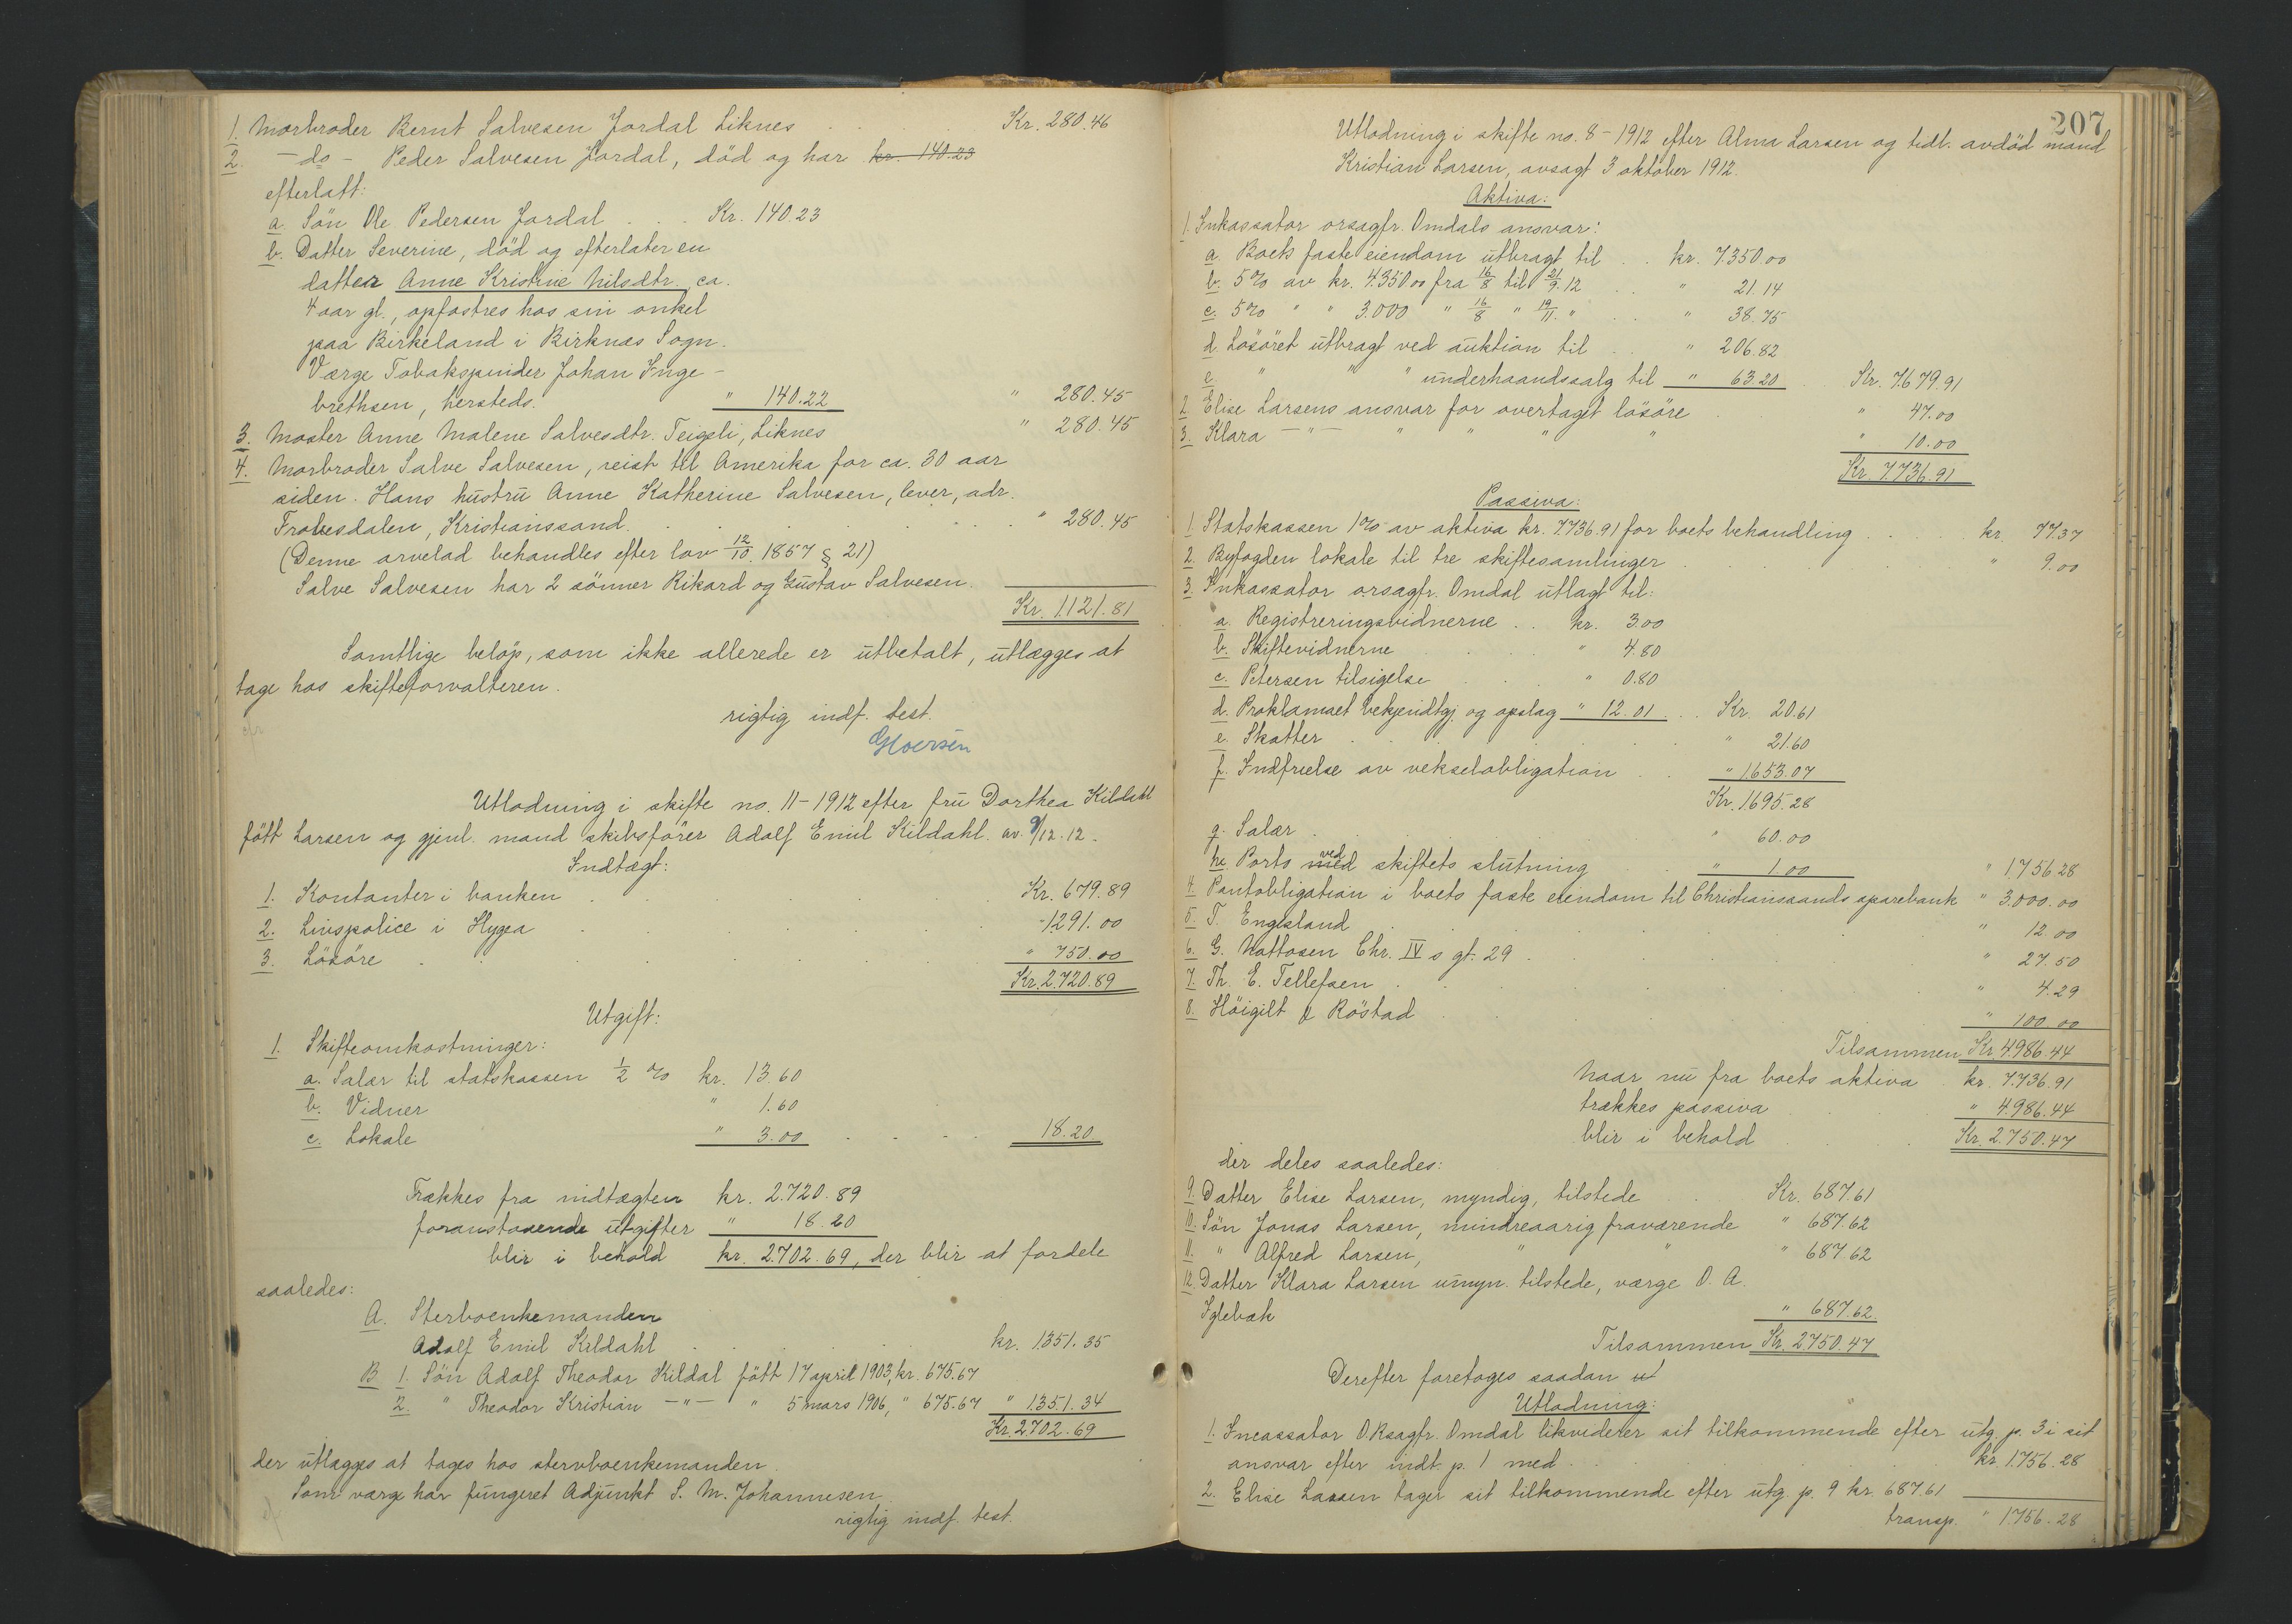 1. Morbroder Bernt Salvesen Jordal Liknes . . . Kr. 280.46
2. - do - Peder Salvesen Jordal, död og har kr. 140.23
efterlatt:
a. Sön Ole Pedersen Jordal . . . Kr. 140.23
b. Datter Severine, död og efterlater en
datter Anne Kristine Nilsdtr. ca.
4 aar gl., opfostres hos sin onkel
paa Birkeland i Birknæs Sogn.
Værge Tobakspinder Johan Inge-
brethsen, hersteds. " 140.22 " 280.45
3. Moster Anne Malene Salvesdtr. Teigeli, Liknes " 280.45
4. Morbroder Salve Salvesen, reist til Amerika for ca. 30 aar
siden. Hans hustru Anne Katherine Salvesen, lever, adr.
Frobusdalen, Kristianssand. . . . " 280.45
(Denne arvelod behandles efter lov 12/10. 1857 § 21)
Salve Salvesen har 2 sönner Rikard og Gustav Salvesen.
Kr. 1.121.81
Samtlige belöp, som ikke allerede er utbetalt, utlægges at
tage hos skifteforvalteren.
rigtig indf. test.
Utlodning i skifte no. 11 - 1912 efter fru Dorthea Kildahl
fött Larsen og gjenl. mand skibsförer Adolf Emil Kildahl. av. 9/12.12.
Indtægt:
1. Kontanter i banken . . . Kr. 679.89
2. Livspolice i Hygea . . . - 1291.00
3. Lösöre . . . " 750.00
Kr. 2.720.89
Utgift:
1. Skifteomkostninger:
a. Salær til statskassen 1/2 % kr. 13.60
b. Vidner " 1.60
c. Lokale " 3.00 . . . 18.20
Trækkes fra indtægten kr. 2.720.89
foranstaaende utgifter " 18.20
blir i behold kr. 2.702.69, der blir at fordele
saaledes:
A. Sterboenkemanden
Adolf Emil Kildahl . . . kr. 1351.35
B 1. Sön Adolf Theodor Kildal fött 17 april 1903, kr. 675.67
2. " Theodor Kristian -"- " 5 mars 1906, " 675.67 " 1.351.34
Kr. 2.702.69
der utlægges at tages hos stervboenkemanden.
Som værge har fungeret Adjunkt S. M. Johannesen
rigtig indf. test.
207
Utlodning i skifte no. 8 - 1912 efter Alma Larsen og tidl. avdöd mand
Kristian Larsen, avsagt 3 oktober 1912.
Aktiva:
1. Inkassator orsagfr. Omdals ansvar:
a. Boets faste eiendom utbragt til . . kr. 7.350.00
b. 5% av kr. 4.350.00 fra 16/8 til 21/9.12 . . " 21.14
c. 5% " " 3.000 " 16/8 " 19/11. " . . " 38.75
d. Lösöret utbragt ved auktion til . . " 206.82
e. " " " underhaandssalg til " 63.20 Kr. 7.679.91
2. Elise Larsens ansvar for overtaget lösöre " 47.00
3. Klara -"- " " " " " 10.00
Kr. 7.736.91
Passiva:
1. Statskassen 1% av aktiva kr. 7.736.91 for boets behandling . . . kr. 77.37
2. Byfogden lokale til tre skiftesamlinger . . . " 9.00
3. Inkassator orsagfr. Omdal utlagt til:
a. Registreringsvidnerne . . kr. 3.00
b. Skiftevidnerne . . . " 4.80
c. Petersen tilsigelse . . . " 0.80
d. Proklamaet bekjendtgj. og opslag " 12.01 . . Kr. 20.61
e. Skatter . . . " 21.60
f. Indfrielse av vekselobligation . . " 1653.07
Kr. 1.695.28
g. Salær . . . " 60.00
h. Porto med ved skiftets slutning . . " 1.00 " 1.756.28
4. Pantobligation i boets faste eiendom til Christianssands sparebank " 3.000.00
5. T. Engesland . . . " 12.00
6. G. Mattosen Chr. IV s gt. 29 . . . " 27.50
7. Th. E. Tellefsen . . . " 4.29
8. Höigilt & Röstad . . . " 100.00
Tilsammen Kr. 4986.44
Naar nu fra boets aktiva . kr. 7.736.91
trækkes passiva . . " 4.986.44
blir i behold . . Kr. 2.750.47
der deles saaledes:
9. Datter Elise Larsen, myndig, tilstede . . Kr. 687.61
10. Sön Jonas Larsen, mindreaarig fraværende " 687.62
11. " Alfred Larsen, " " " 687.62
12. Datter Klara Larsen umyn. tilstede, værge O. A.
Iglebæk " 687.62
Tilsammen Kr. 2.750.47
Derefter foretages saadan ut
Utlodning:
1. Incassator O.Rsagfr. Omdal likviderer sit tilkommende efter utg. p. 3 i sit
ansvar efter indt. p. 1 med . . . kr. 1.756.28
2. Elise Larsen tager sit tilkommende efter utg. p. 9 kr. 687.61
transp. " 1.756.28